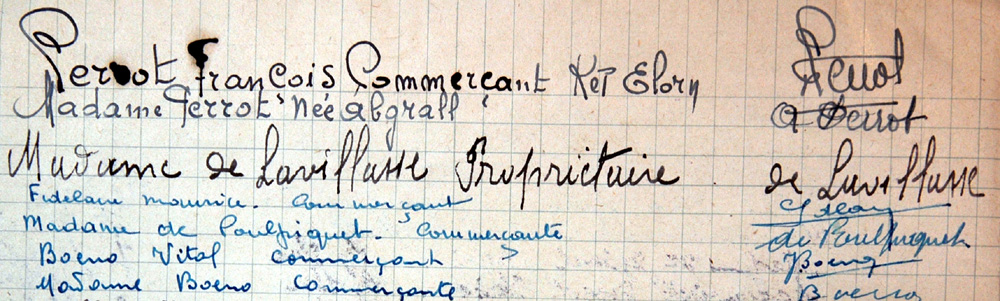 Perrot François Commerçant Kei Elorn Perrot
Madame Perrot Née Abgrall A Perrot
Madame de Lavillasse Propriétaire de Lavillasse
Maurice. Commerçant
Madame de Poulpiquet. Commerçante de Poulpiquet
Boeno Vital Commerçant Boeno
Madame Boeno Commerçante Boeno